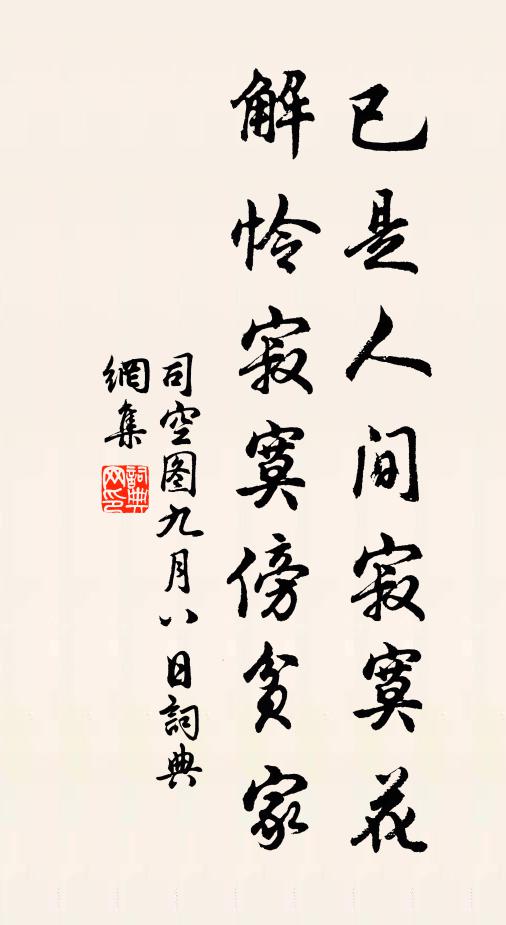 已是人间寂寞花
解怜寂寞傍贫家
司空图九月八日詞典
網集
詞典
网印